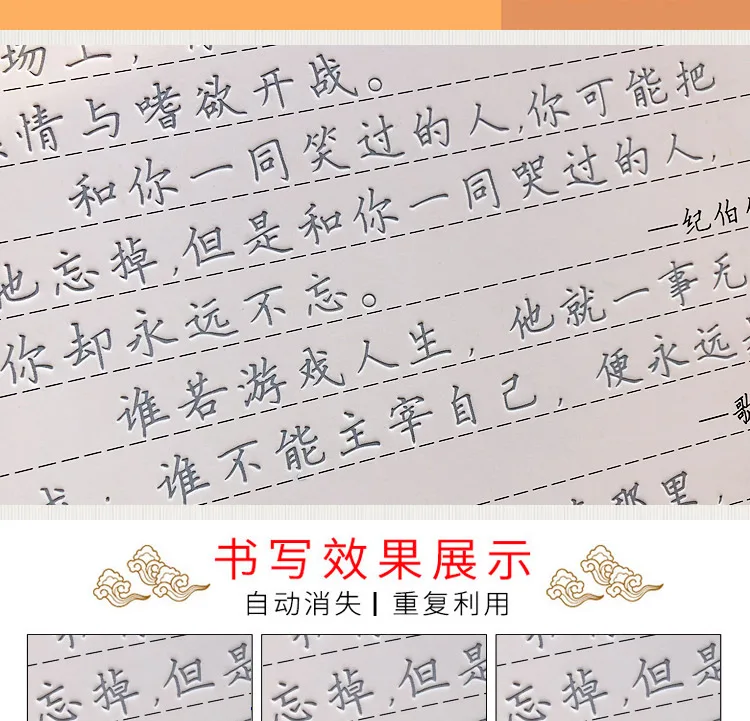 情与嗜欲开战。
和你一同笑过的人,你可能把
他忘掉,但是和你一同哭过的人,
—纪伯
你却永远不忘。
谁若游戏人生,他就一事无
—歌
谁不能主宰自己,便永远
那里,
书写效果展示
自动消失 | 重复利用
忘掉,但是
忘掉,但是
忘掉,但是